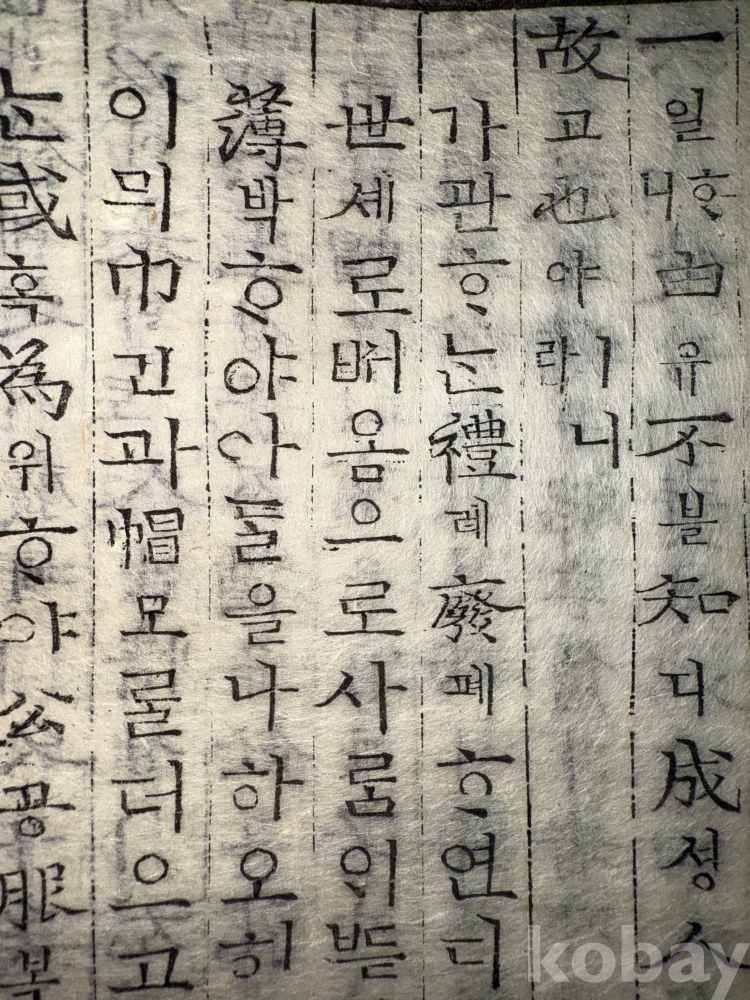 一일ᄒᆞ니由유不블知디成셩人
故고也야ㅣ니라
가관ᄒᆞᄂᆞᆫ禮례廢폐ᄒᆞ연디
世셰로ᄡᅥ옴으로사ᄅᆞᆷ이ᄠᅳᆮ
薄박ᄒᆞ야아ᄃᆞᆯ을나하오히
이믜巾건과帽모ᄅᆞᆯ더으고
ᄂᆞᆫ或혹為위ᄒᆞ야公공服복
kobay